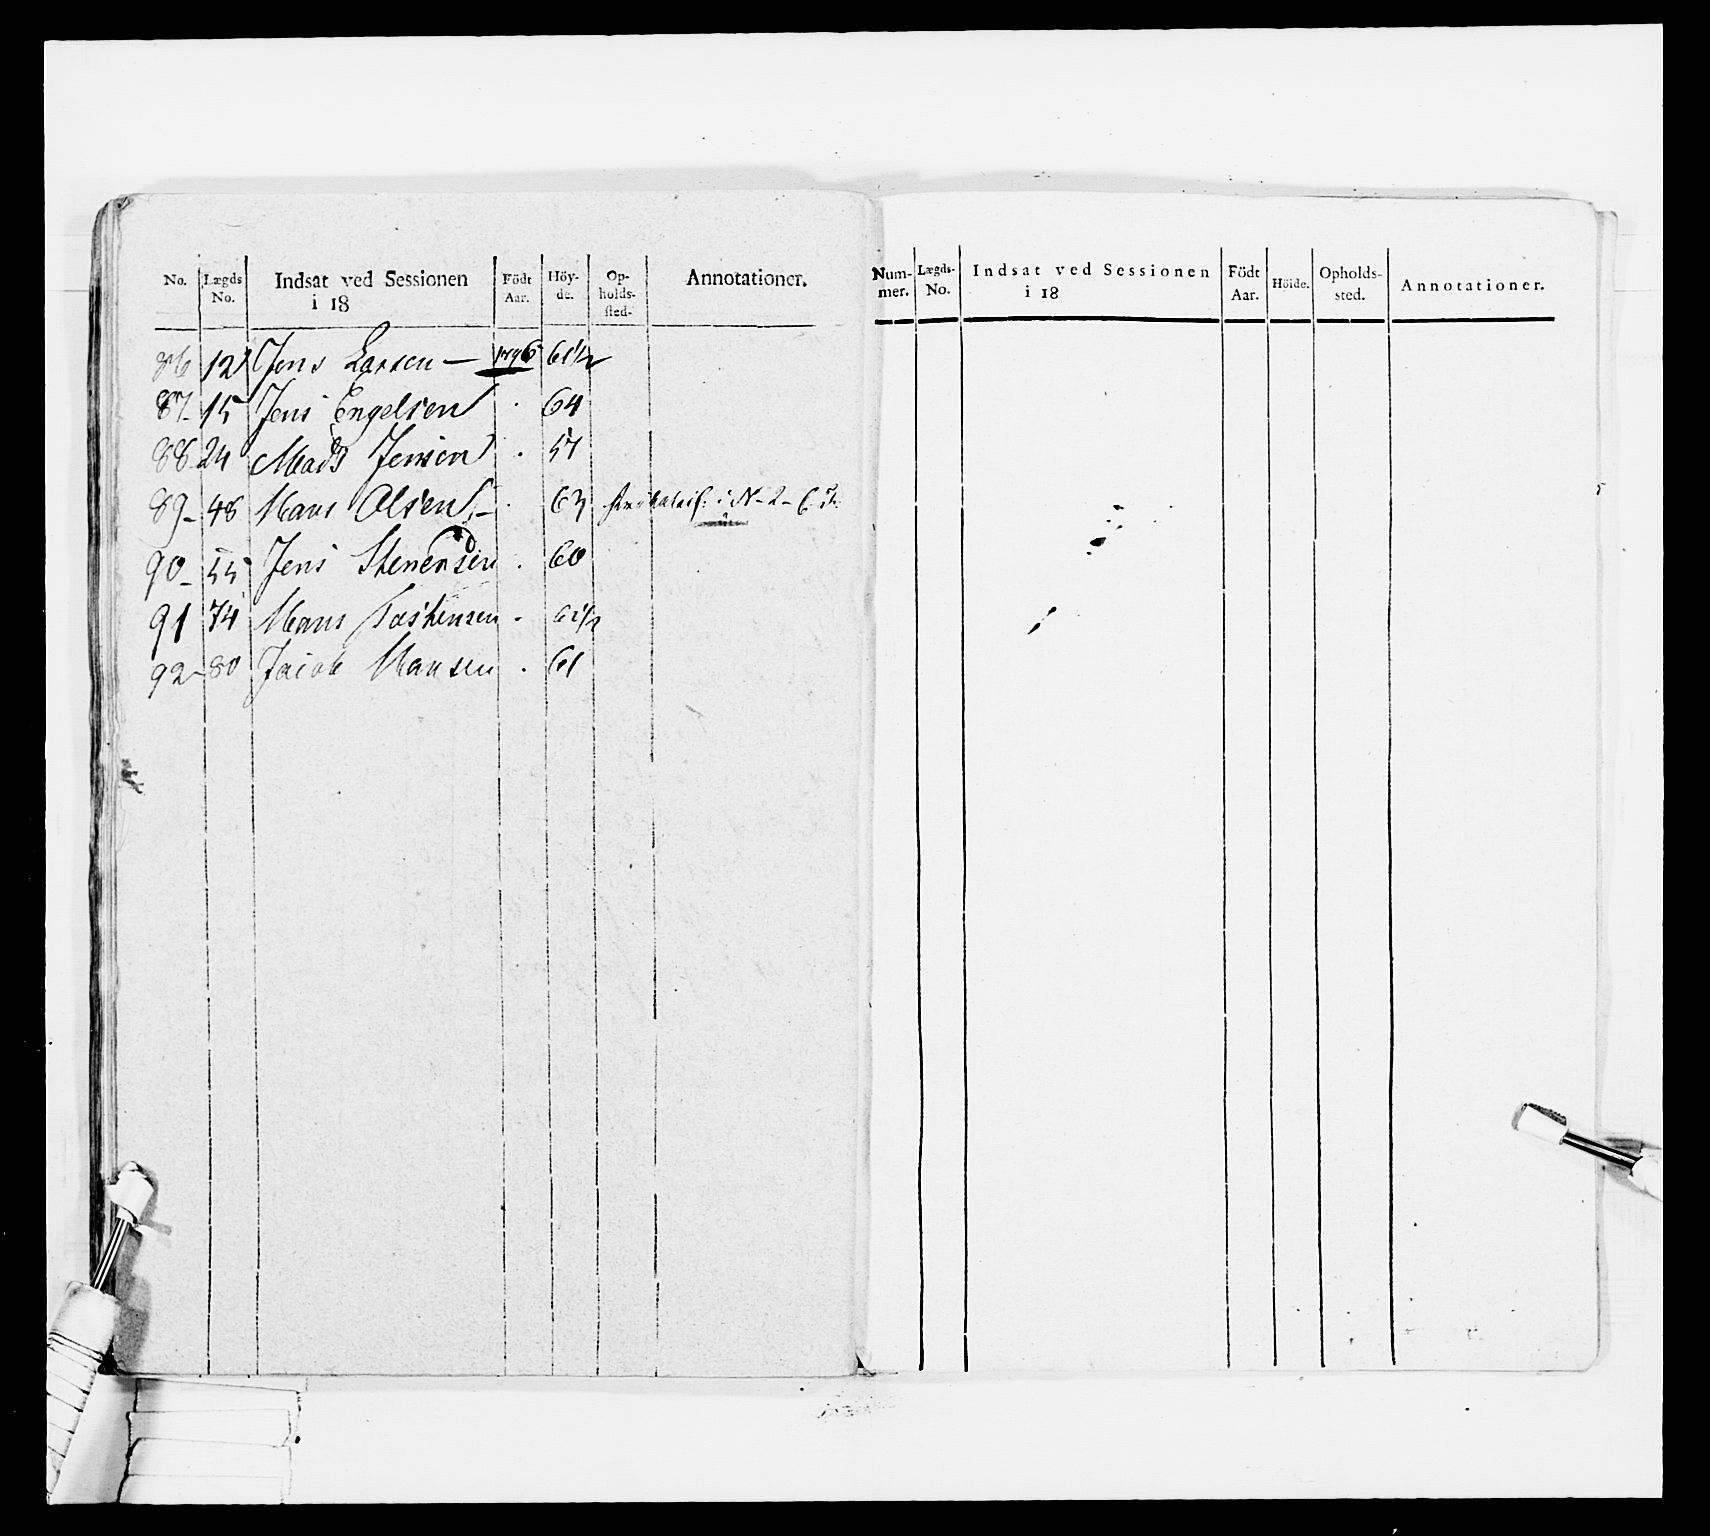 No. Lægds No. Indsat ved Sessionen i 18 Födt Aar. Höy-de. Op-holds-sted. Annotationer.
86 12 Jens Larsen — 1796 61½
87 15 Jens Engelsen 64
88 24 Mads Jensen 57
89 48 Hans Olsen 63 i N-2-
90 55 Jens Stenersen 60
91 74 Hans Tostensen 61½
92 80 Jacob Hansen 61
Num-mer. Lægds-No. Indsat ved Sessionen i 18 Födt Aar. Höide. Opholds-sted. Annotationer.